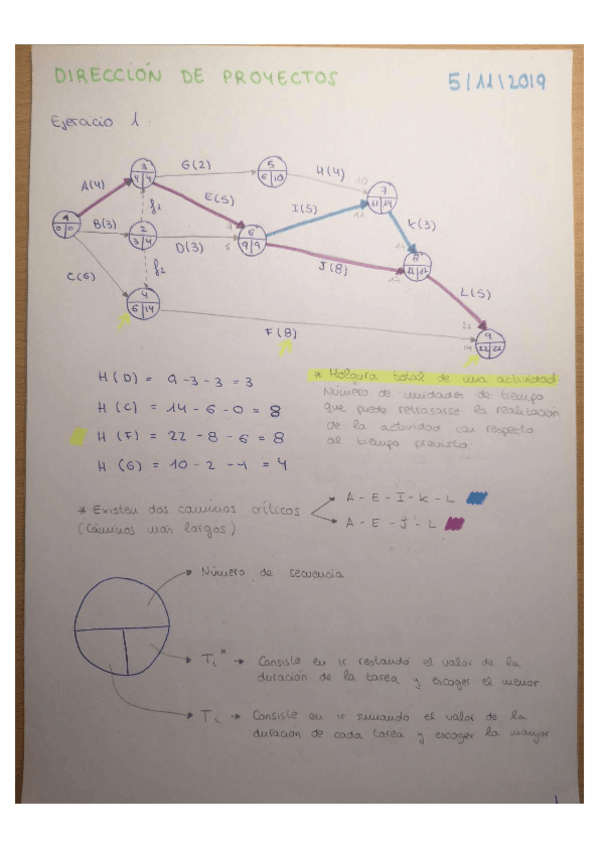 DIRECCIÓN DE PROYECTOS
5/11/2019
Ejercicio 1
A(4)
B(3)
C(6)
G(2)
H(4)
E(5)
D(3)
I(5)
J(8)
K(3)
L(5)
F(8)
f1
f2
1
0 0
2
3 4
3
4 4
4
6 14
5
6 10
6
9 9
7
8
9
22 22
10
22
14
H(D) = 9-3-3 = 3
H(C) = 14-6-0 = 8
H(F) = 22-8-6 = 8
H(G) = 10-2-4 = 4
* Holgura total de una actividad
Número de unidades de tiempo
que puede retrasarse la realización
de la actividad con respecto
al tiempo previsto
* Existen dos caminos críticos
(Caminos más largos)
A - E - I - K - L
A - E - J - L
Número de secuencia
Ti* → Consiste en ir restando el valor de la
duración de la tarea y escoger el menor
Ti → Consiste en ir sumando el valor de la
duración de cada tarea y escoger la mayor